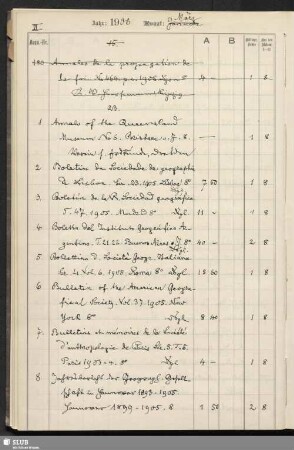 II.
Jahr: 1906 Monat: März
A B
15
480 Annales de la propagation de
la foi No 466. 1906 Lyon 8 4 — 1 8
23.
1 Annals of the Queensland
Museum No 6. Brisbane 8 — 1 8
Verein f. Erdkunde, Dresden
2 Boletim da Sociedade de geographia
de Lisboa Se. 23. 1905 Lisboa 8° 7 50 1 8
3 Boletin de la R. Sociedad geografica
T. 47. 1905. Madrid 8° Dgl. 11 — 1 8
4 Boletin del Instituto Geografico Ar-
gentino. T. 21.22. Buenos Aires 8° Dgl. 40 — 2 8
5 Bollettino d. Società Geogr. Italiana
Se. 4 Vol. 6. 1905. Roma 8° Dgl. 18 60 1 8
6 Bulletin of the American Geogra-
fical Society. Vol. 37. 1905. New
York 8° Dgl. 8 40 1 8
7 Bulletins et mémoires de la Société
d'anthropologie de Paris Se. 5. T. 5
Paris 1903-4. 8° Dgl. 4 — 1 8
8 Jahresbericht der Geograph. Gesell-
schaft in Hannover 1893-1905
Hannover 1899-1905. 8 1 50 2 8
SLUB